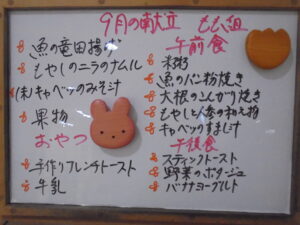 9月の献立 もも組
魚の竜田揚げ
もやしのニラのナムル
(未)キャベツのみそ汁
果物
おやつ
手作りフレンチトースト
牛乳
午前食
米粥
魚のパン粉焼き
大根のこんがり焼き
もやしと人参の和え物
キャベツのすまし汁
午後食
スティックトースト
野菜のポタージュ
バナナヨーグルト